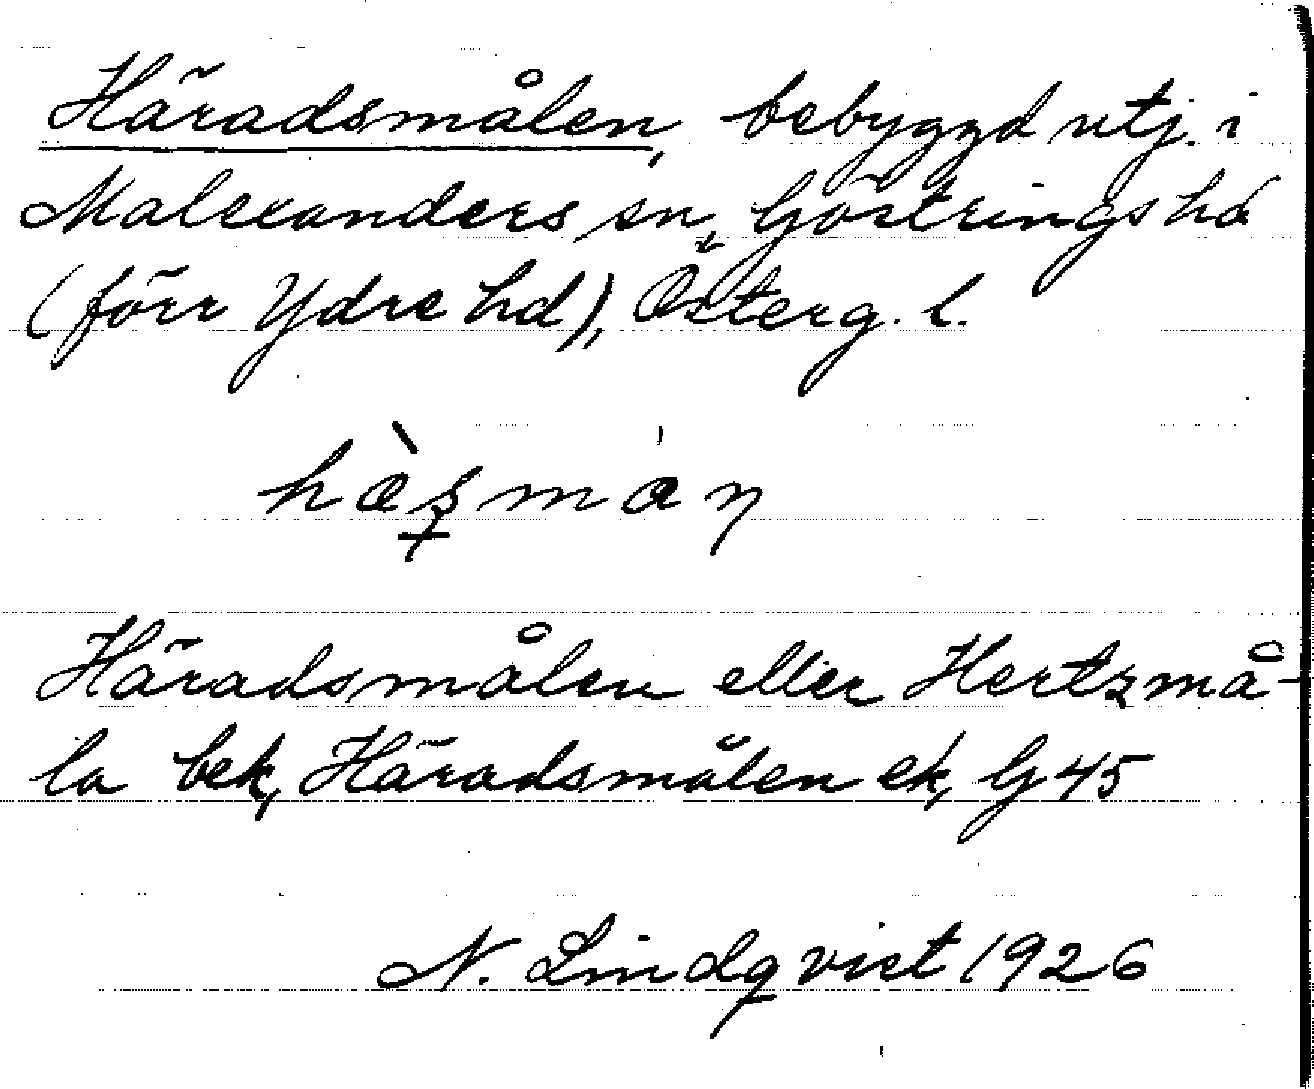 Häradsmålen, bebyggd utj. i
Malexanders sn, Göstrings hd
(förr Ydre hd), Österg. l.
Häradsmålen eller Hertzmå-
la bek, Häradsmålen ek, G 45
N. Lindqvist 1926